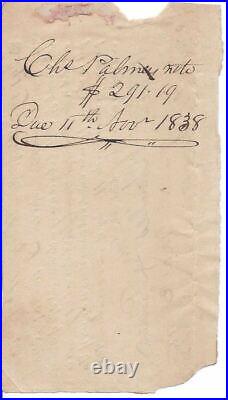 Chs Palmer note
$ 291.19
Due 11th Novr 1838